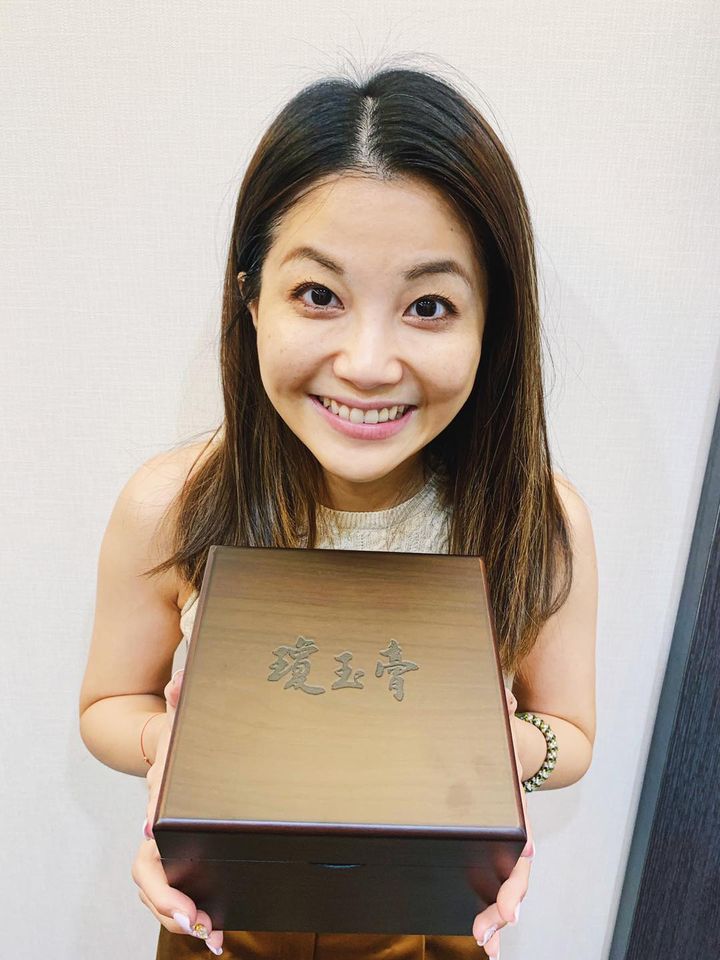 瓊玉膏